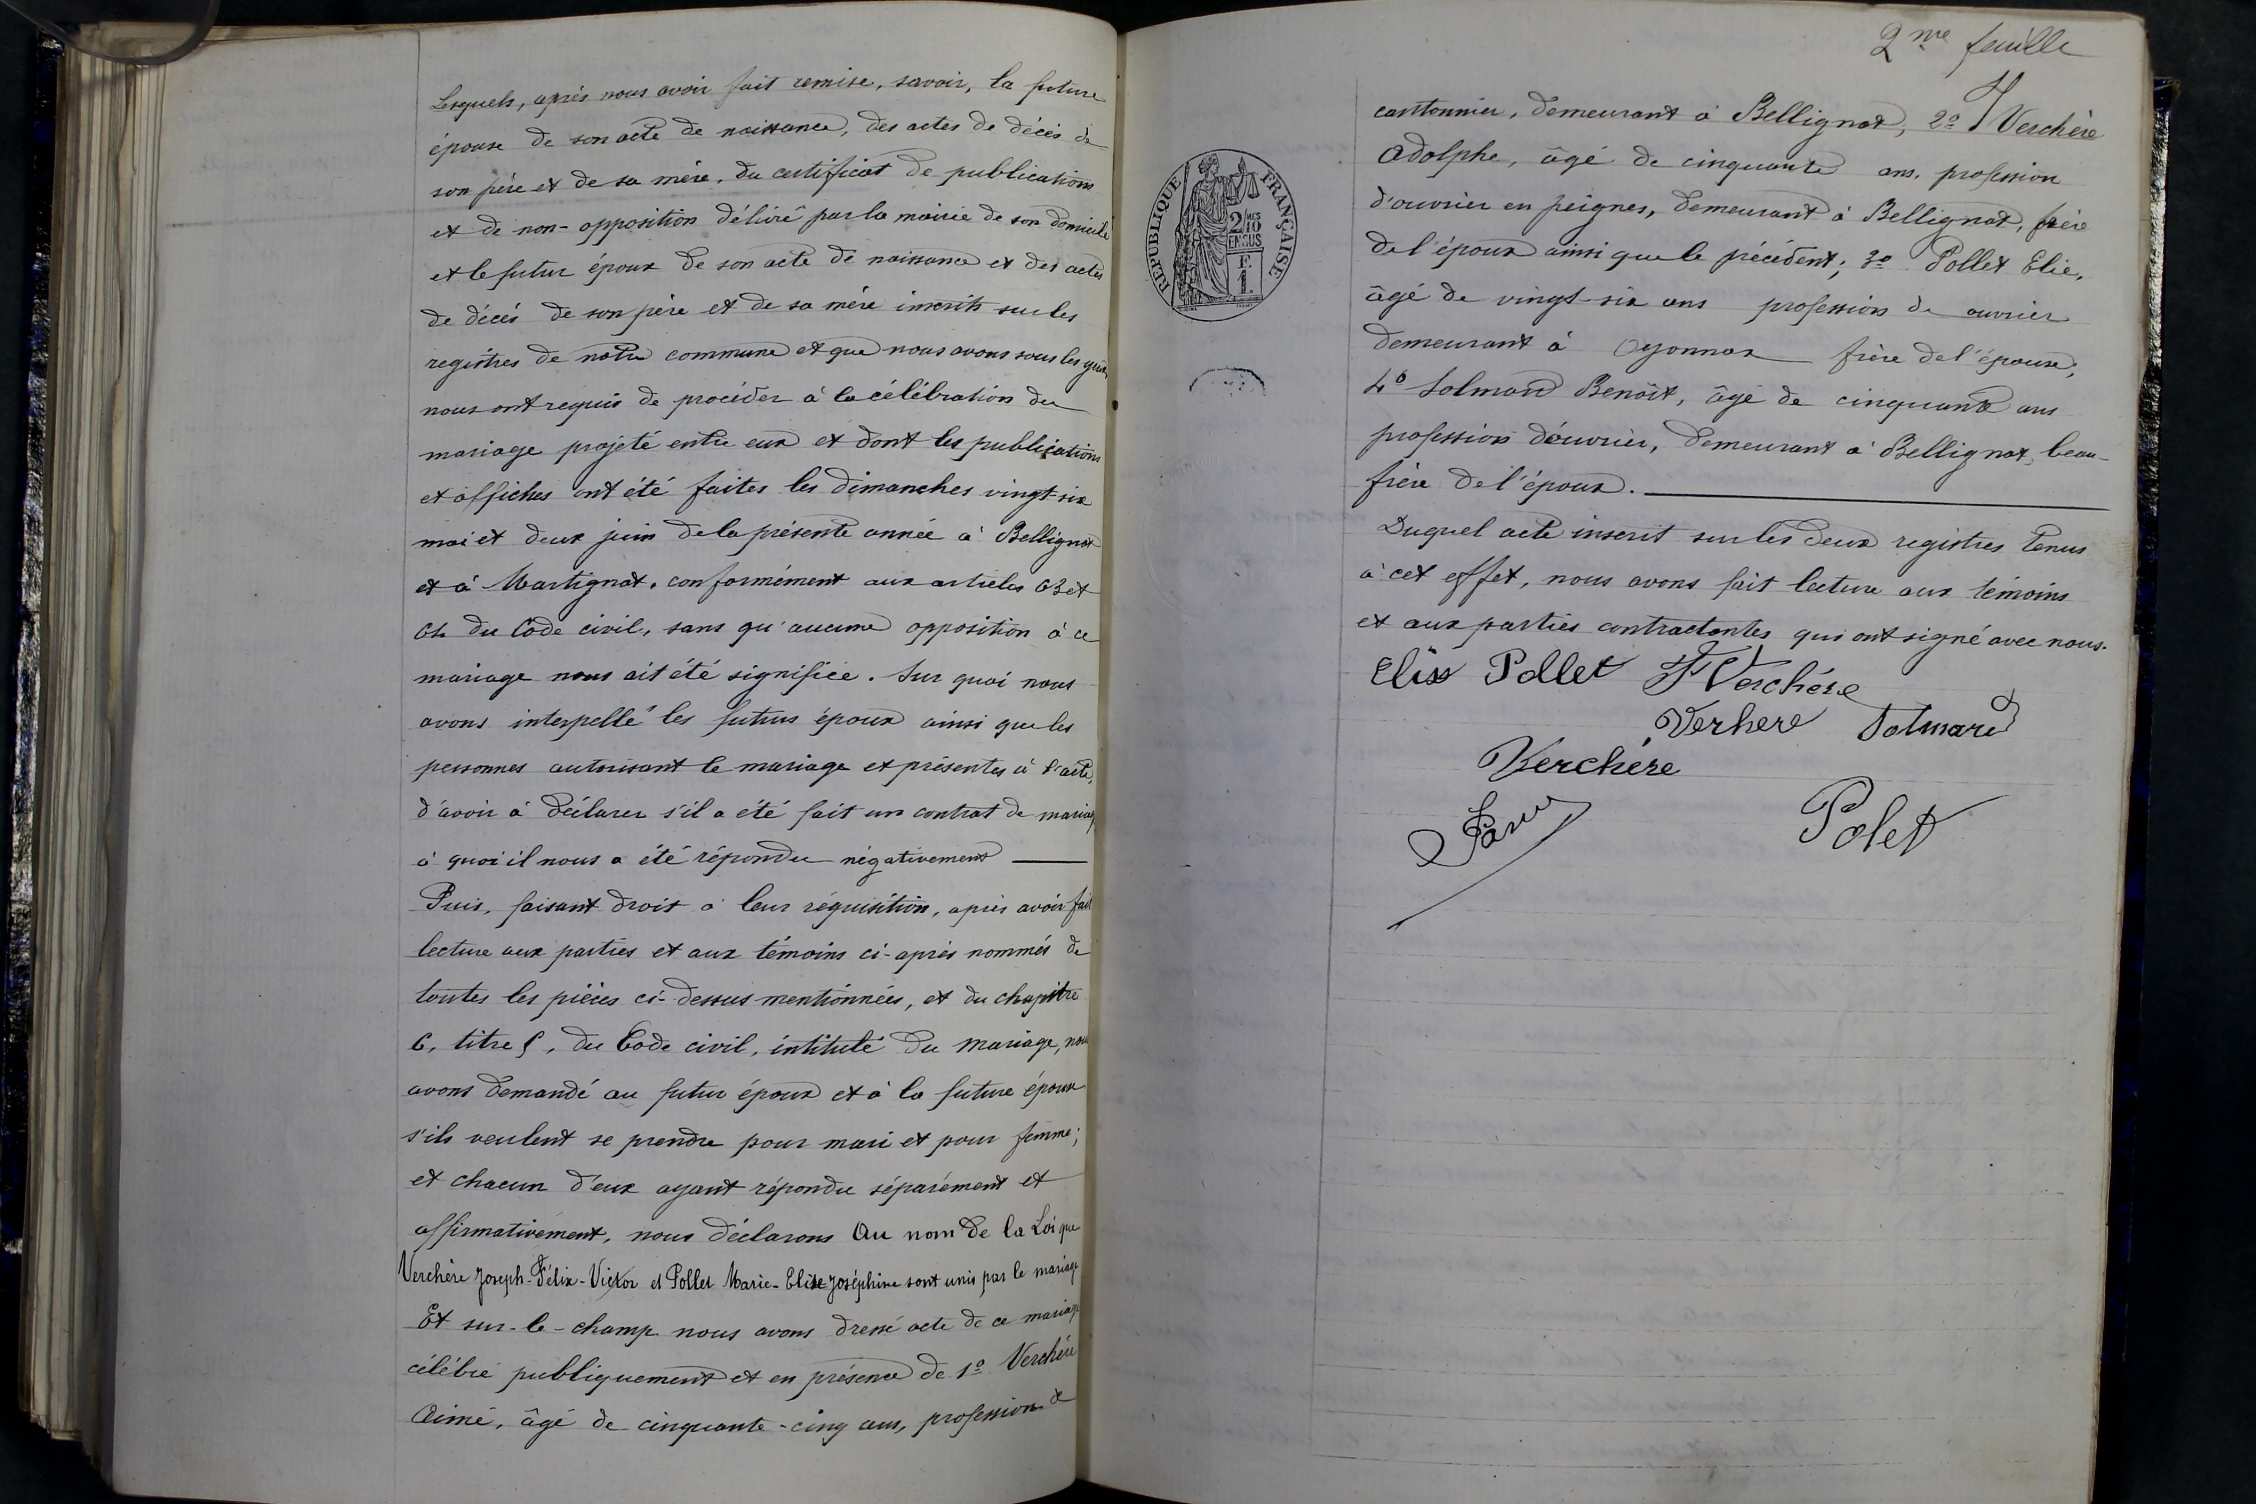 Lesquels, après nous avoir fait remise, savoir, la future
épouse de son acte de naissance, des actes de décès de
son père et de sa mère, du certificat de publications
et de non-opposition délivré par la mairie de son domicile
et le futur époux de son acte de naissance et des actes
de décès de son père et de sa mère inscrits sur les
registres de notre commune et que nous avons sous les yeux,
nous ont requis de procéder à la célébration du
mariage projeté entre eux et dont les publications
et affiches ont été faites les dimanches vingt-six
mai et deux juin de la présente année à Bellignat
et à Martignat, conformément aux articles 63 et
64 du Code civil, sans qu'aucune opposition à ce
mariage nous ait été signifiée. Sur quoi nous
avons interpellé les futurs époux ainsi que les
personnes autorisant le mariage et présentes à l'acte,
d'avoir à déclarer s'il a été fait un contrat de mariage
à quoi il nous a été répondu négativement
Puis, faisant droit à leur réquisition, après avoir fait
lecture aux parties et aux témoins ci-après nommés de
toutes les pièces ci-dessus mentionnées, et du chapitre
6, titre 5, du Code civil, intitulé du Mariage, nous
avons demandé au futur époux et à la future épouse
s'ils veulent se prendre pour mari et pour femme;
et chacun d'eux ayant répondu séparément et
affirmativement, nous déclarons Au nom de la Loi que
Verchère Joseph-Félix-Victor et Pollet Marie-Elise Joséphine sont unis par le mariage
Et sur-le-champ nous avons dressé acte de ce mariage
célébré publiquement et en présence de 1º Verchère
Aimé, âgé de cinquante-cinq ans, profession de
2me feuille
cantonnier, demeurant à Bellignat, 2º Verchère
Adolphe, âgé de cinquante ans, profession
d'ouvrier en peignes, demeurant à Bellignat, frère
de l'époux ainsi que le précédent; 3º Pollet Elie,
âgé de vingt-six ans profession de ouvrier
demeurant à Oyonnax frère de l'épouse;
4º Solmard Benoît, âgé de cinquante ans
profession d'ouvrier, demeurant à Bellignat, beau-
frère de l'époux.
Duquel acte inscrit sur les deux registres tenus
à cet effet, nous avons fait lecture aux témoins
et aux parties contractantes qui ont signé avec nous.
Elise Pollet JF Verchère
Verhere Solmard
Verchère
Polet
RÉPUBLIQUE FRANÇAISE
2/10 EN SUS
F.
1.